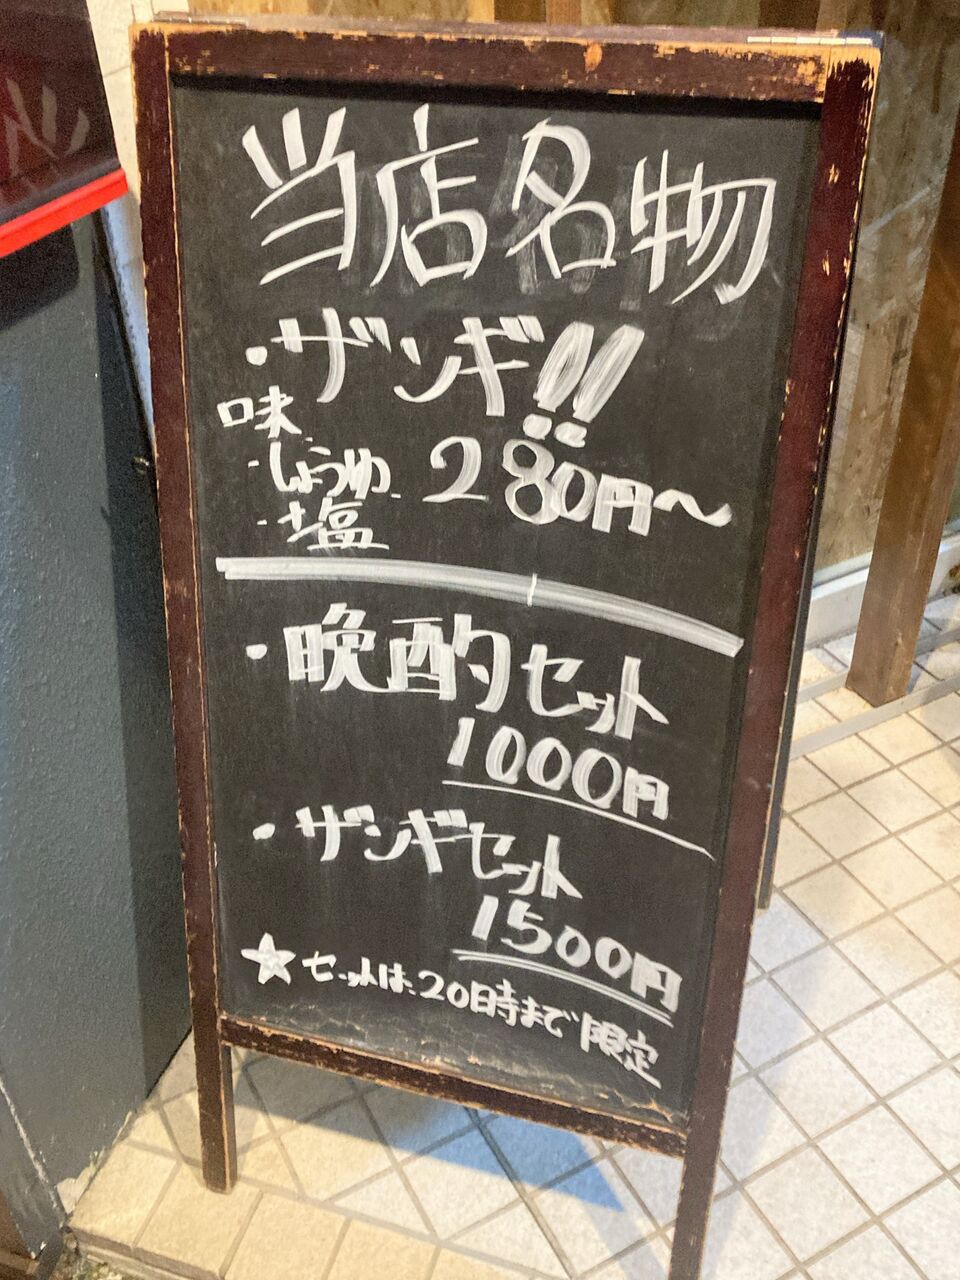 当店名物
・ザンギ!!
味
・しょうゆ
・塩
280円〜
・晩酌セット
1000円
・ザンギセット
1500円
★セットは、20時まで限定